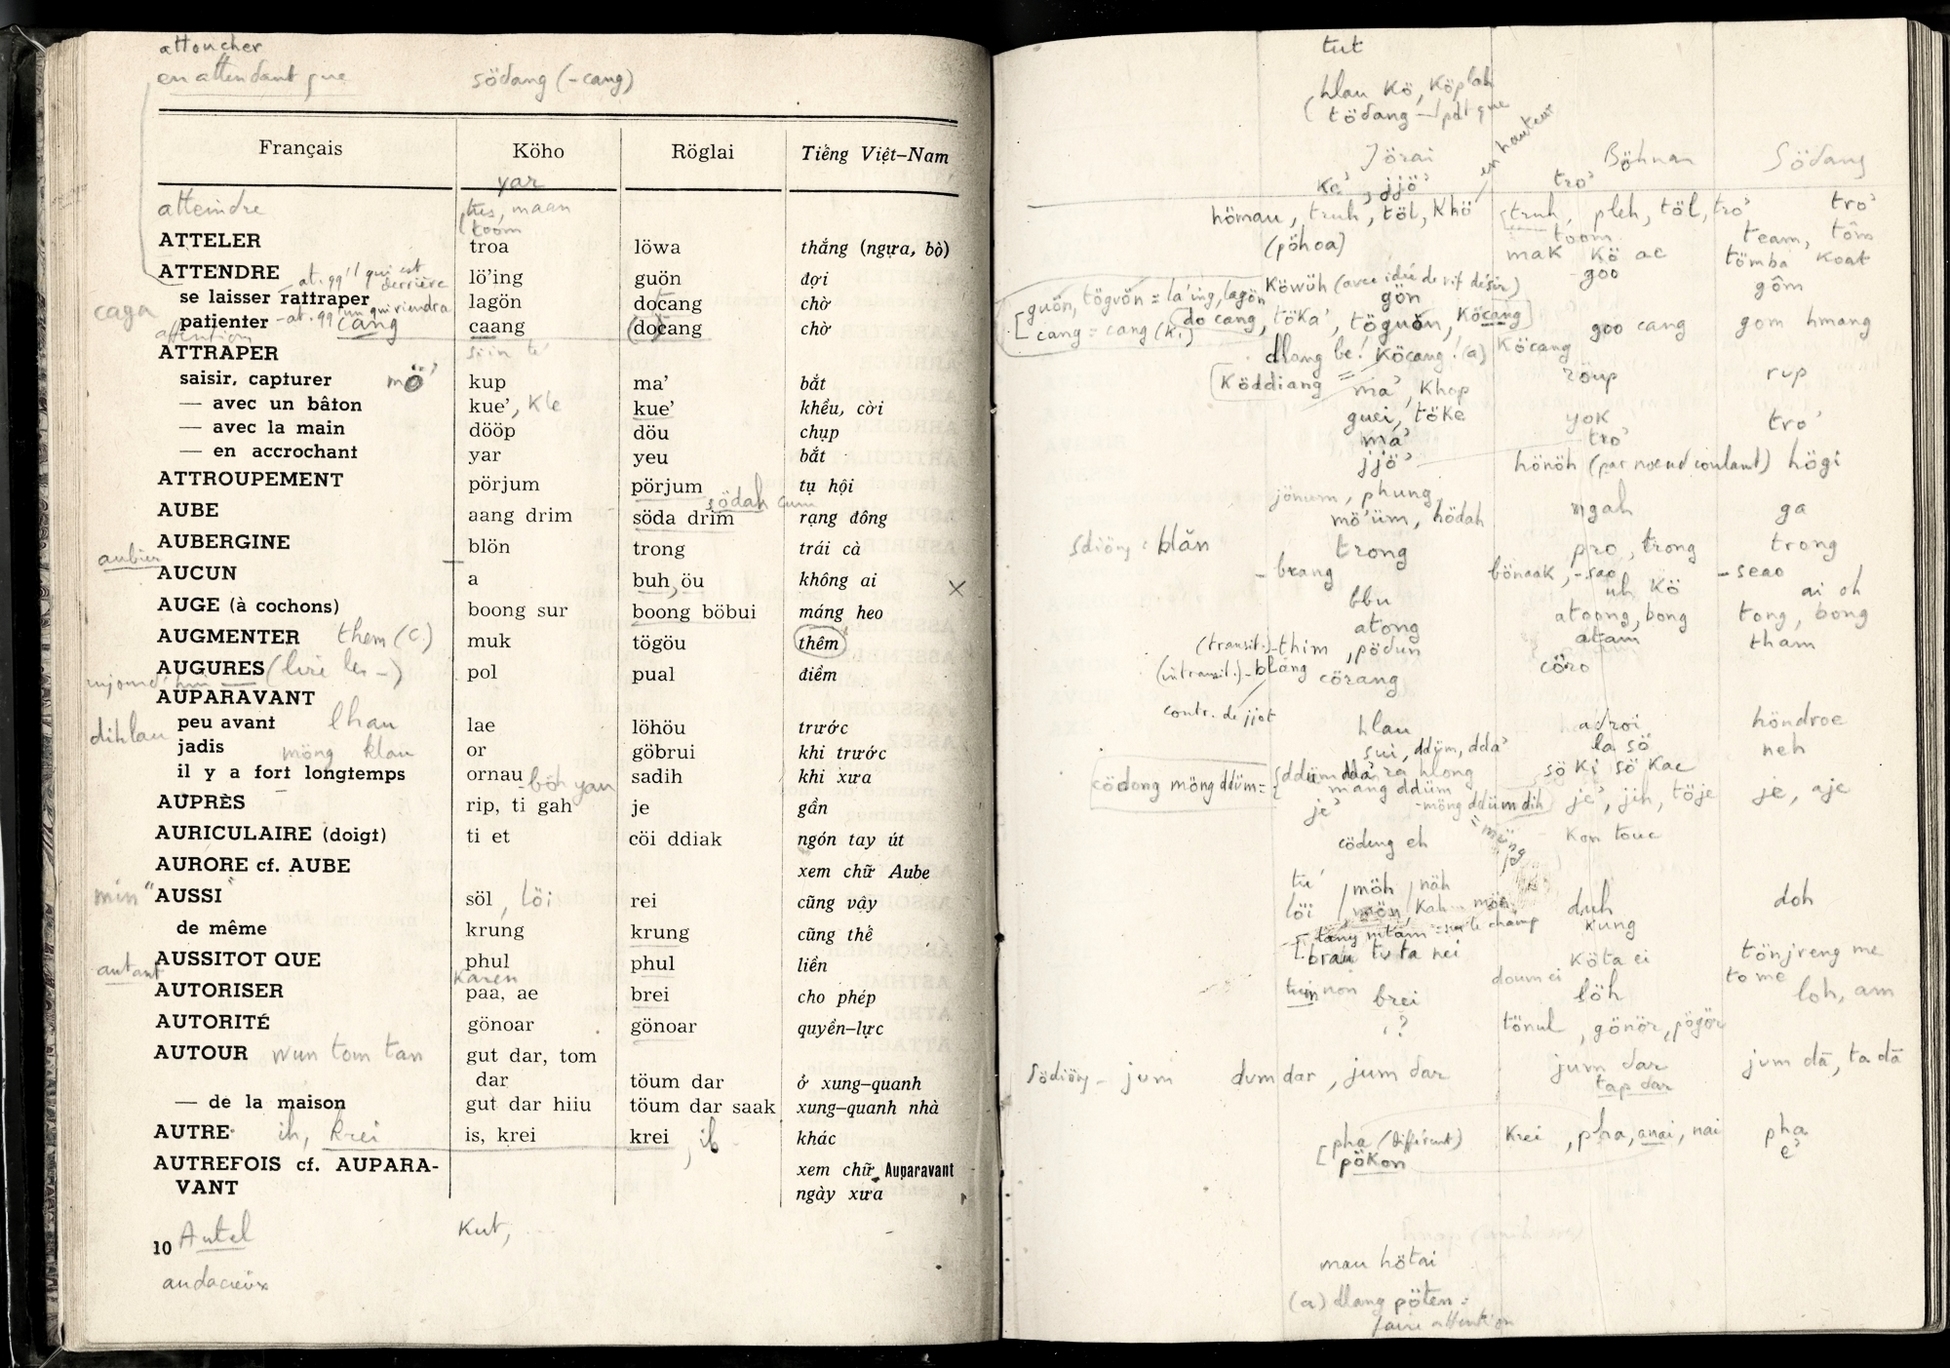 attoucher
en attendant que södang (-cang)
Français Köho Röglai Tiếng Việt-Nam
yar
atteindre maan
toom
ATTELER troa löwa thắng (ngựa, bò)
ATTENDRE lö'ing guön đợi
at. qq'l qui est derrière
se laisser rattraper lagön docang chờ
caga
patienter cang caang (docang chờ
at. qq'un qui viendra
attention
ATTRAPER
saisir, capturer kup ma' bắt
— avec un bâton kue', kle kue' khều, cời
— avec la main dööp döu chụp
— en accrochant yar yeu bắt
ATTROUPEMENT pörjum pörjum tụ hội
södah
AUBE aang drim söda drim rạng đông
AUBERGINE blön trong trái cà
aubier
AUCUN a buh, öu không ai ×
AUGE (à cochons) boong sur boong böbui máng heo
AUGMENTER them (c.) muk tögöu thêm
AUGURES (lire les -) pol pual điềm
aujourd'hui
AUPARAVANT
peu avant lhau lae löhöu trước
dihlau
jadis möng klau or göbrui khi trước
il y a fort longtemps ornau böh yau sadih khi xưa
AUPRÈS rip, ti gah je gần
AURICULAIRE (doigt) ti et cöi ddiak ngón tay út
AURORE cf. AUBE xem chữ Aube
min AUSSI söl, löi rei cũng vậy
de même krung krung cũng thế
AUSSITOT QUE phul phul liền
autant karen
AUTORISER paa, ae brei cho phép
AUTORITÉ gönoar gönoar quyền-lực
AUTOUR wun tom tan gut dar, tom
dar töum dar ở xung-quanh
— de la maison gut dar hiiu töum dar saak xung-quanh nhà
AUTRE ih, krei is, krei krei ih khác
AUTREFOIS cf. AUPARA- xem chữ Auparavant
VANT ngày xưa
10 Autel kut,
audacieux
tut
hlau kö, köplah
(tödang — pdt que
en hauteur
Jörai Böhnan Södang
ke', jjö' tro'
hömau, truh, töl, khö truh, pleh, töl, tro' tro'
toom team, tôm
(pöhoa) mak kö ac tömba koat
Köwüh (avec idée de vif désir) goo
gön gôm
guön, tögvön = la'ing, lagön
[cang = cang (k.) do cang, töka', töguön, köcang] goo cang gom hmang
dlang be! köcang! (a) köcang
(köddiang = ma', khop röup rup
guei, töke yok tro'
ma' tro'
jjö' hönöh (par noeud coulant) högi
jönum, phung
mö'üm, hödah ngah ga
Sdiöng: blăn trong pro, trong trong
- brang bönaak, -sao - seao
bbu uh kö ai oh
atong atoong, bong tong, bong
(transit.) - thim, pödun atam tham
(intransit.) - blang cörang cöro
contr. de jjot
hlau adroi höndroe
sui, ddüm, dda' la sö neh
cödong möng ddüm = ddüm dda' ra hlong sö ki sö kae
mang ddüm
je' - möng ddüm dih je', jih, töje je, aje
cödeng eh kon touc
tu' möh näh
löi mön, kah duh doh
tang mtam kung
[brau tu ta nei köta ei tönjreng me
doum ei to me
non brei löh loh, am
? tönul, gönör, pögör
Södiöng - jum dum dar, jum dar jum dar jum dā, ta dā
tap dar
pha (différent) krei, pha, anai, nai pha
[pökon e'
mau hötai
(a) dlang pöten:
faire attention